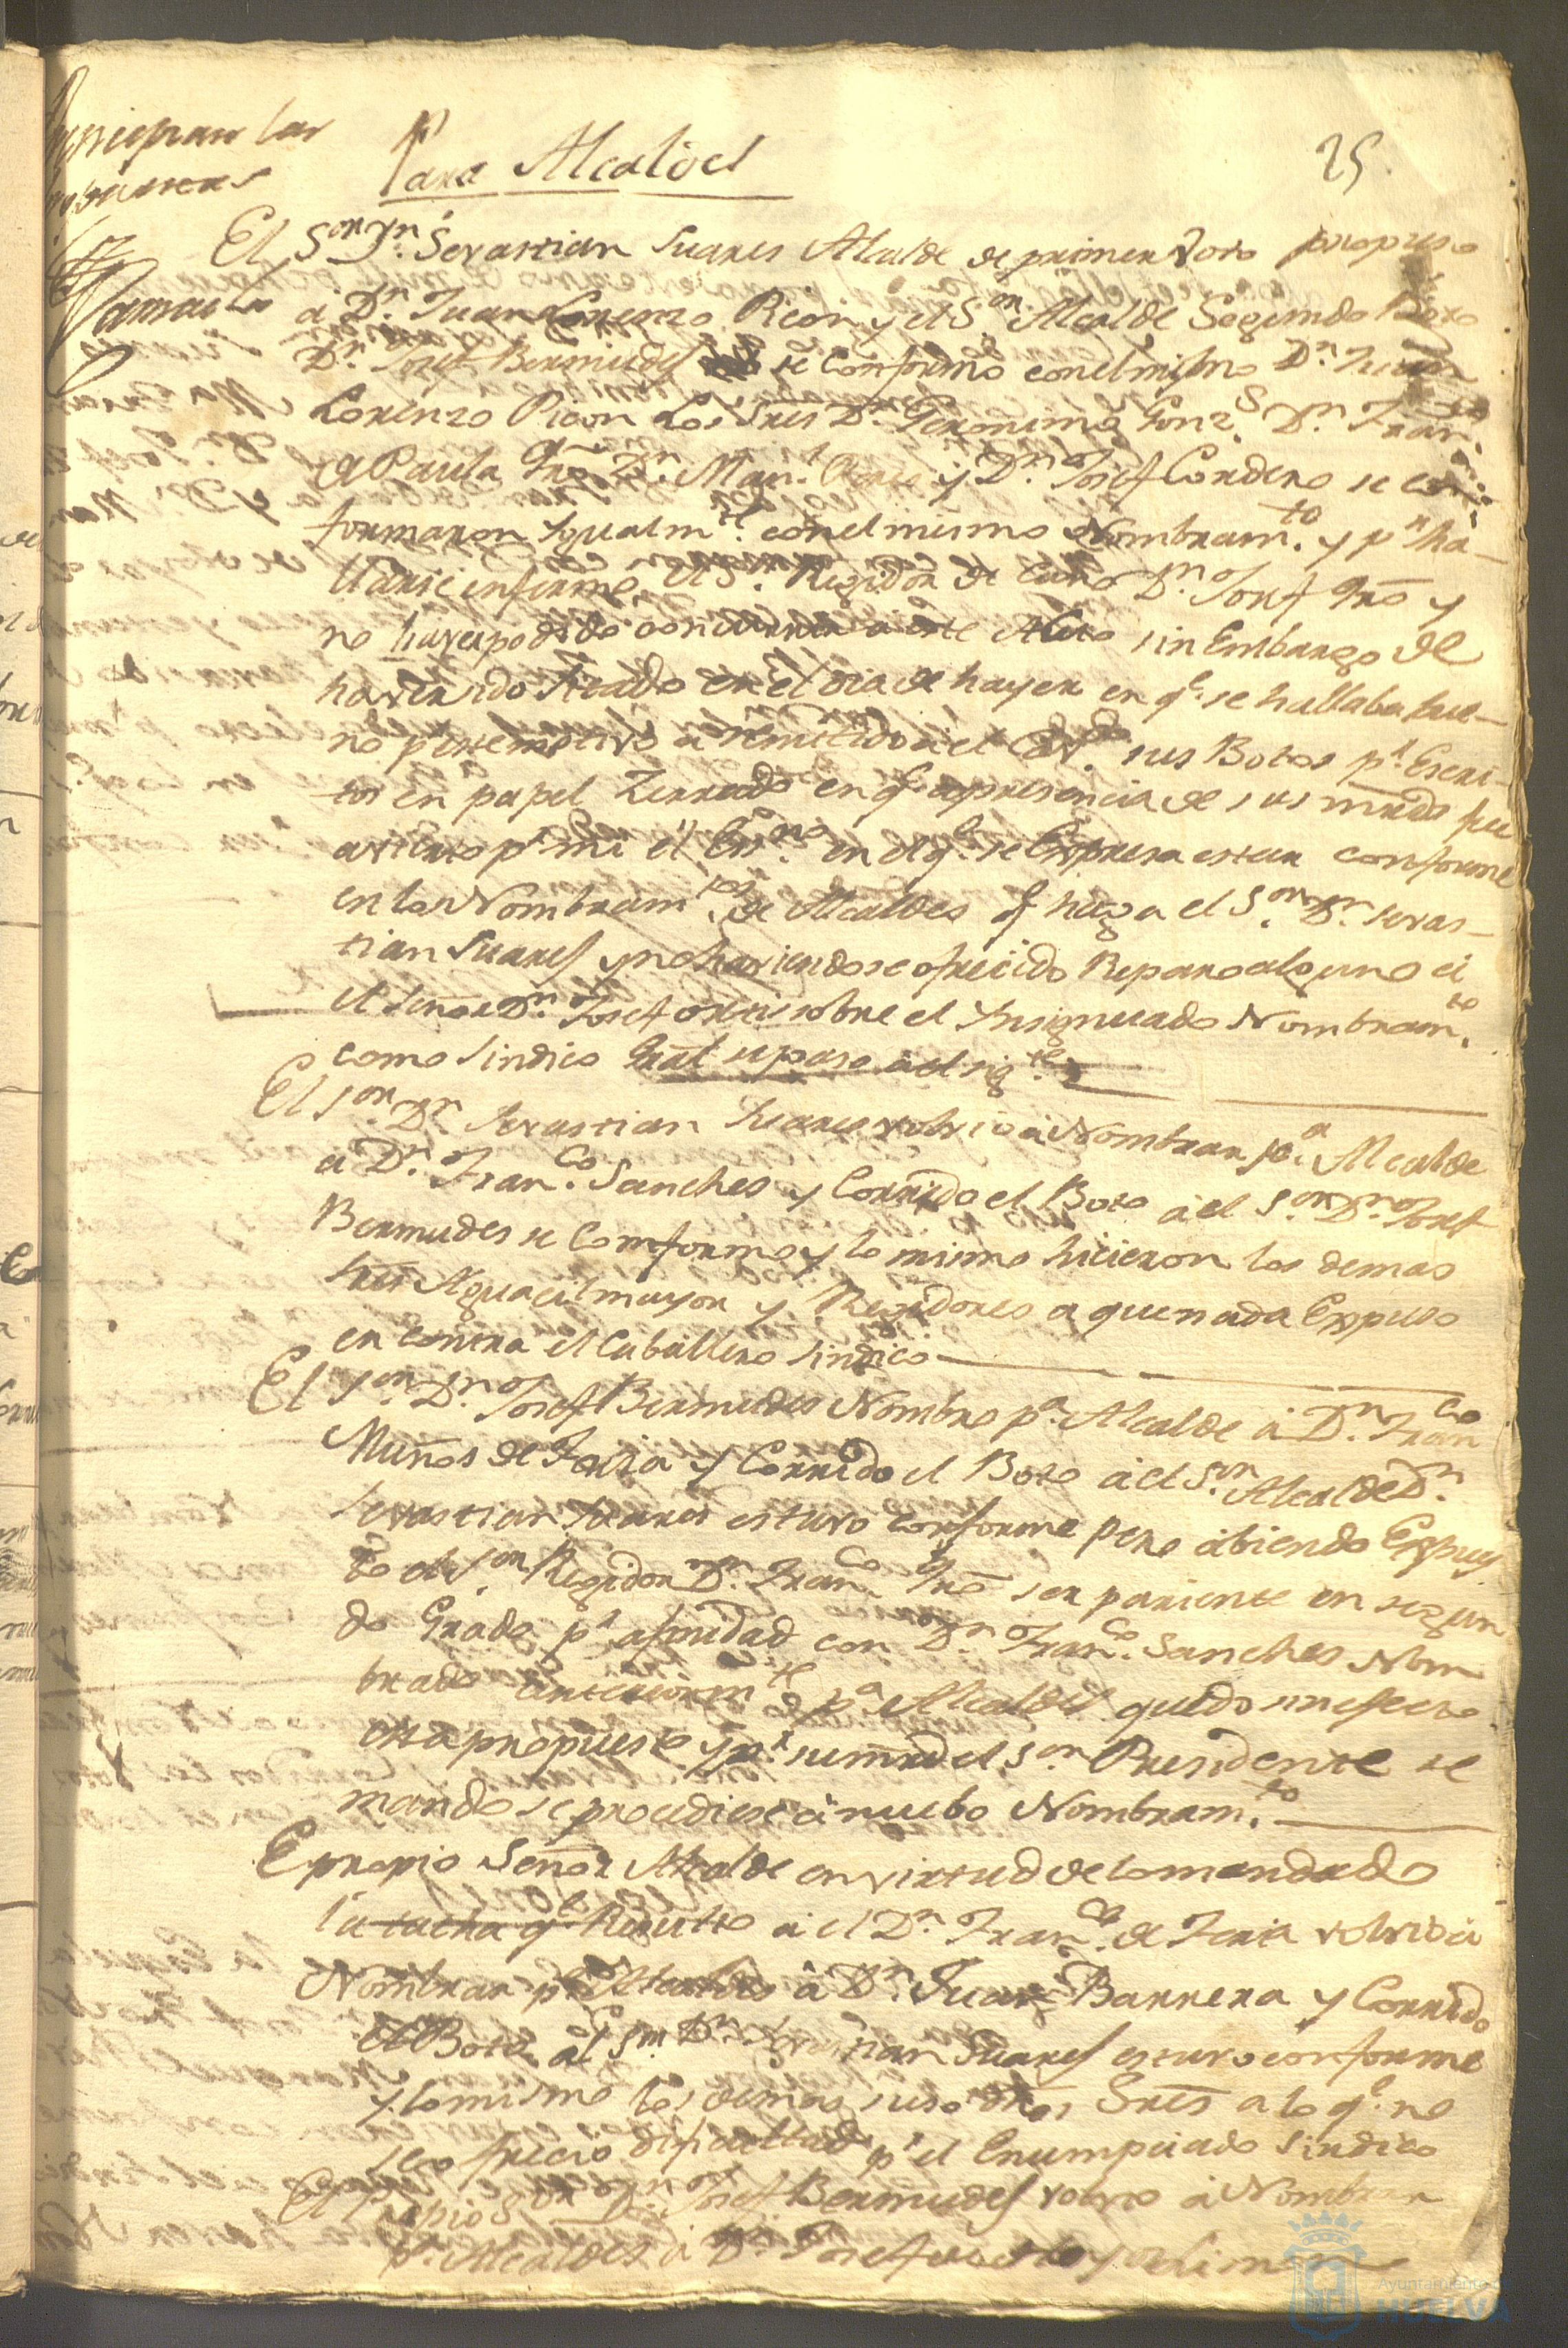 Para Alcaldes
25.
El Sor Dn. Sevastian Suares Alcalde de primer Voto propuso
à Dn. Juan Lorenzo Picon y el Sor. Alcalde Segundo Boto
Dn. Josef Bermudes se Conformò con el mismo Dn. Juan
Lorenzo Picon Los Sres Dn. Geronimo Gonzs. Dn. Franco.
de Paula Dn. Manl. y Dn. Josef Cordero se con
formaron Igualmte. con el mismo Nombramto. y pr. ha-
llarse enfermo el Sor. Regidor Dn. Josef y
no haver podido concurrir a este Acto sin Embargo de
haver sido Sitado en el dia de hayer en qe. se hallaba bue-
no por este motivo a remitido à el Cavdo. sus Botos pr. Escri-
tos en papel Zerrado en qe. a presencia de sus mrds. fue
avierto pr. mi el Essno. en el qe. se Expresa estar conforme
en los Nombramtos. de Alcaldes qe. haga el Sor. Dn. Sevas-
tian Suares y no haviendose ofrecido Reparo alguno à
el Señor Dn. Josef sobre el Ynsignuado Nombramto.
como Sindico Gral. se paso à el sigte.
El Sor. Dn. Sevastian Suares volvio à Nombrar pa. Alcalde
a Dn. Franco. Sanches y Corrido el Boto à el Sor. Dn. Josef
Bermudes se Comformo y lo mismo hicieron los demas
Sres Alguacil mayor y Regidores a que nada Expuso
en contra el Caballero Sindico
El Sor. Dn. Josef Bermudes Nombro pa. Alcalde à Dn. Franco
Muños de Feria y Corrido el Boto à el Sor. Alcalde Dn.
Sevastian Suares estuvo conforme pero abiendo Expues
to el Sor. Regidor Dn. Franco. ser pariente en segun
do Grado pr. afinidad con Dn. Franco. Sanches Nom
brado anteriormte. pa. Alcalde quedo sin efecto
esta propuesta y pr. su mrd. el Sor. Presidente se
mando se procediese à nuebo Nombramto.
E propio Señor Alcalde en virtud de lo mandado
la tacha qe. Resulto à el Dn. Franco. de Feria volvio à
Nombrar pa. Alcaldes à Dn. Juan Barrera y Corrido
el Boto al Sor. Dn. Sevastian Suares estuvo conforme
y lo mismo los demas suso dhos Sres a lo qe. no
se ofrecio dificultad pr. el Enumpciado Sindico
El Propio Sor. Dn. Josef Bermudes volvio à Nombrar
pa. Alcaldes à Dn. Josef
Ayuntamiento de
HUELVA